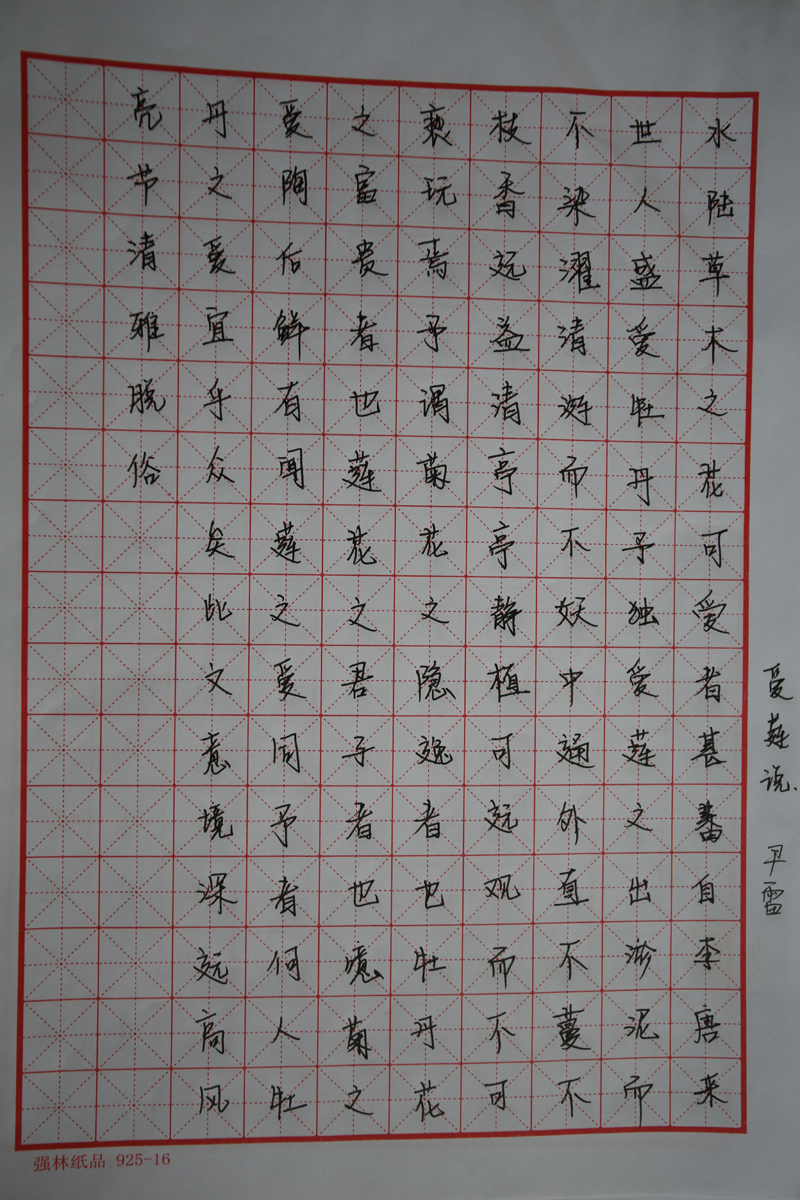 爱莲说. 尹雷
水陆草木之花可爱者甚蕃自李唐来
世人盛爱牡丹予独爱莲之出淤泥而
不染濯清涟而不妖中通外直不蔓不
枝香远益清亭亭静植可远观而不可
亵玩焉予谓菊花之隐逸者也牡丹花
之富贵者也莲花之君子者也噫菊之
爱陶后鲜有闻莲之爱同予者何人牡
丹之爱宜乎众矣此文意境深远高风
亮节清雅脱俗
强林纸品 925-16